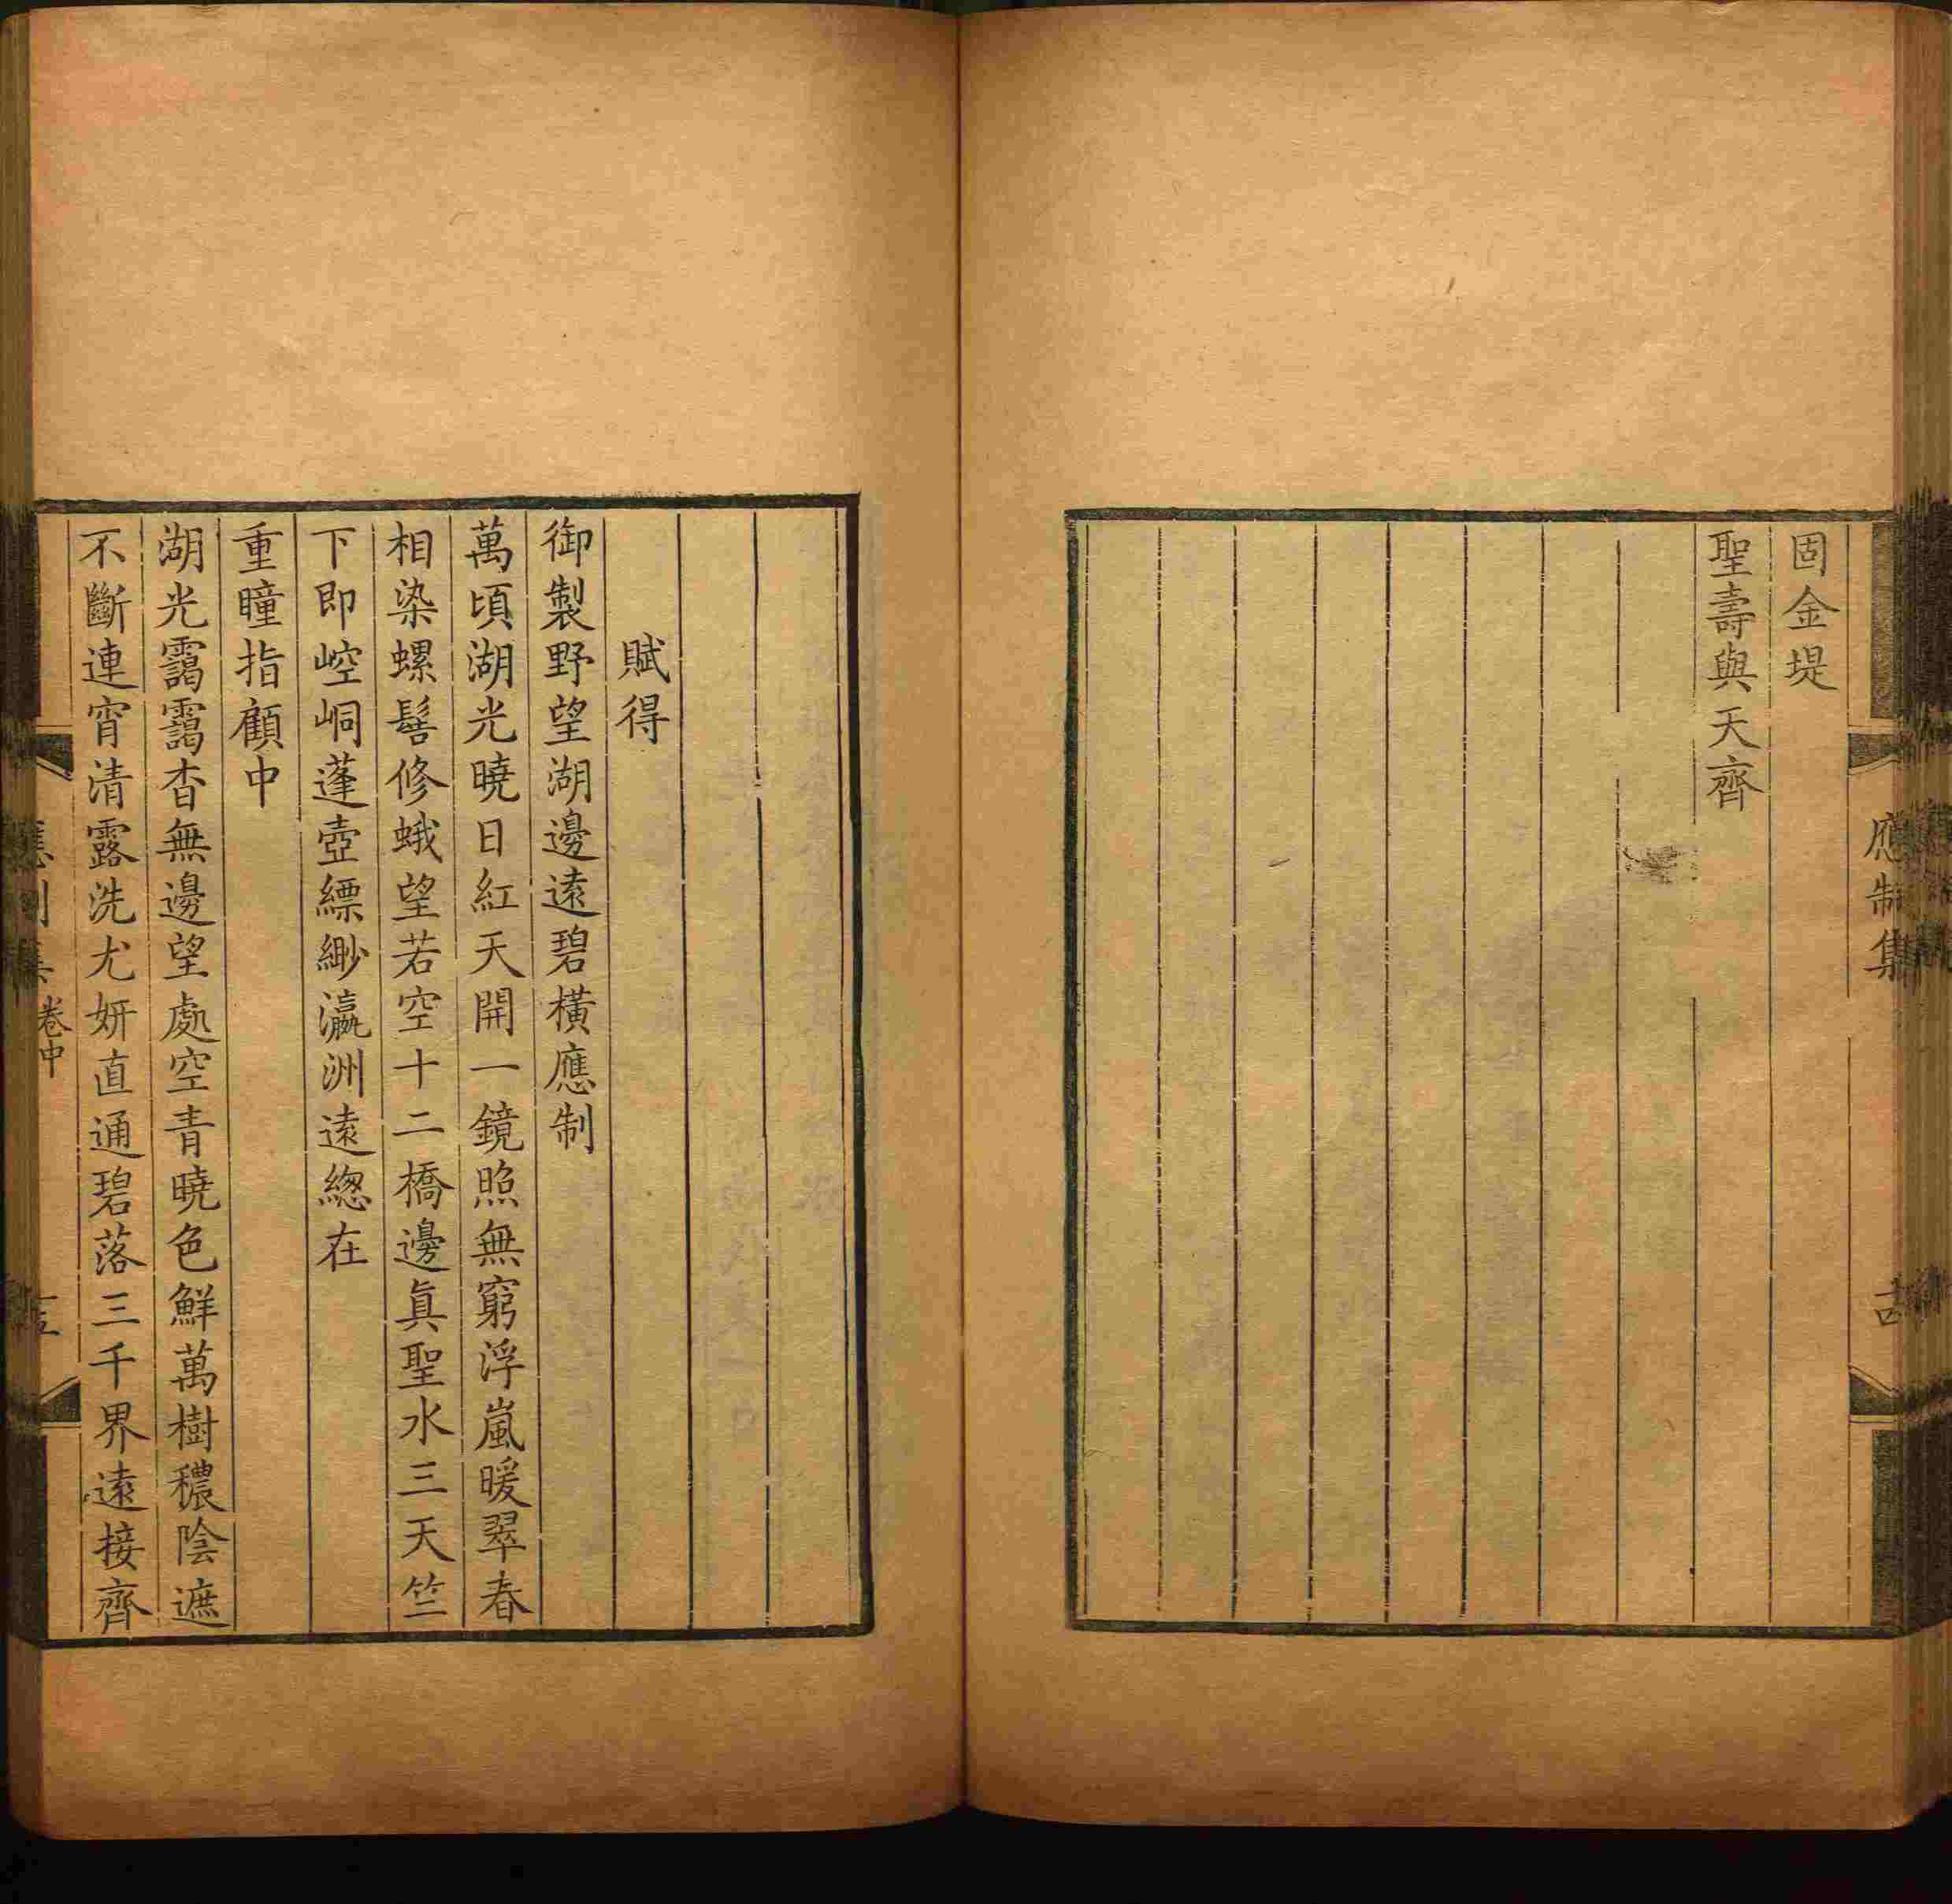 固金堤
聖壽與天齊
應制集
賦得
御製野望湖邊遠碧橫應制
萬頃湖光曉日紅天開一鏡照無窮浮嵐暖翠春
相染螺髻修蛾望若空十二橋邊眞聖水三天竺
下即崆峒蓬壺縹緲瀛洲遠總在
重瞳指顧中
湖光靄靄杳無邊望處空青曉色鮮萬樹穠陰遮
不斷連宵清露洗尤妍直通碧落三千界遠接齊
卷中